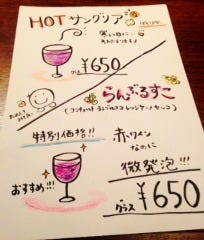 HOT サングリア
寒い日に…
グラス ¥650
らんぶるすこ
(コンチェルト ランブルスコ レッジアーノ セッコ)
特別価格!!
赤ワイン
なのに
微発泡!!!
おすすめ!!!
グラス ¥650